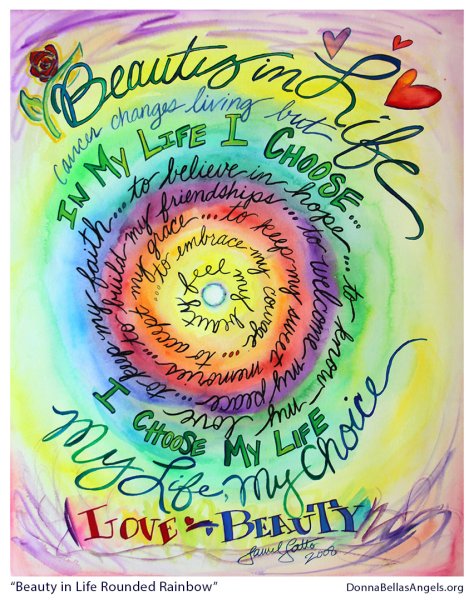 Beauty in Life
Cancer changes living but
IN MY LIFE I CHOOSE...
to keep my faith...to believe in hope...to know my love
...to build my friendships...to welcome my peace
...to accept my grace...to keep my sweet memories
...to embrace my courage...
feel my beauty
I CHOOSE MY LIFE
My Life, My Choice
LOVE BEAUTY
Laurel Gatto
2008
“Beauty in Life Rounded Rainbow”
DonnaBellasAngels.org